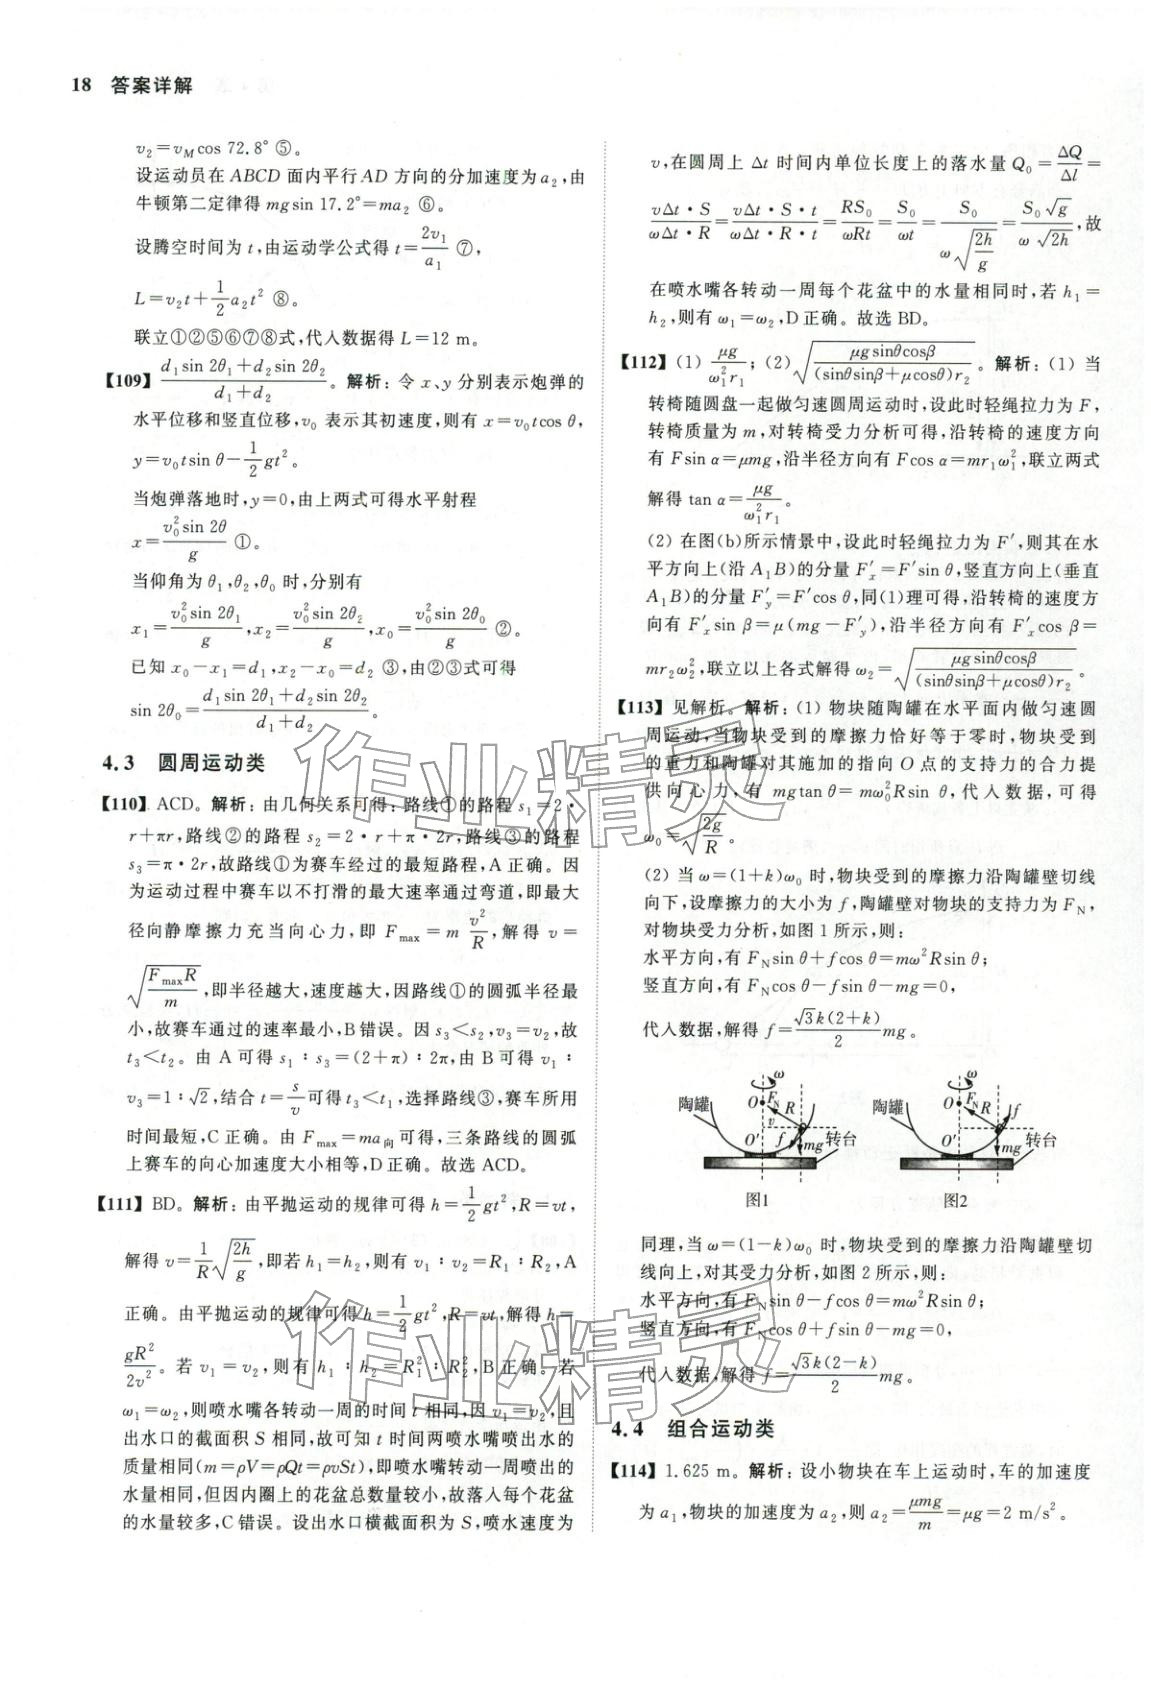 18 答案详解
v₂=v_M cos 72.8° ⑤。
设运动员在 ABCD 面内平行 AD 方向的分加速度为 a₂,由
牛顿第二定律得 mgsin 17.2°=ma₂ ⑥。
设腾空时间为 t,由运动学公式得 t=\frac{2v₁}{a₁} ⑦,
L=v₂t+\frac{1}{2}a₂t² ⑧。
联立①②⑤⑥⑦⑧式,代入数据得 L=12 m。
【109】\frac{d₁sin 2θ₁+d₂sin 2θ₂}{d₁+d₂}。解析:令 x、y 分别表示炮弹的
水平位移和竖直位移,v₀ 表示其初速度,则有 x=v₀tcos θ,
y=v₀tsin θ-\frac{1}{2}gt²。
当炮弹落地时,y=0,由上两式可得水平射程
x=\frac{v₀²sin 2θ}{g} ①。
当仰角为 θ₁,θ₂,θ₀ 时,分别有
x₁=\frac{v₀²sin 2θ₁}{g},x₂=\frac{v₀²sin 2θ₂}{g},x₀=\frac{v₀²sin 2θ₀}{g} ②。
已知 x₀-x₁=d₁,x₂-x₀=d₂ ③,由②③式可得
sin 2θ₀=\frac{d₁sin 2θ₁+d₂sin 2θ₂}{d₁+d₂}。
4.3 圆周运动类
【110】ACD。解析:由几何关系可得:路线①的路程 s₁=2·
r+πr,路线②的路程 s₂=2·r+π·2r,路线③的路程
s₃=π·2r,故路线①为赛车经过的最短路程,A 正确。因
为运动过程中赛车以不打滑的最大速率通过弯道,即最大
径向静摩擦力充当向心力,即 F_max=m\frac{v²}{R},解得 v=
\sqrt{\frac{F_max R}{m}},即半径越大,速度越大,因路线①的圆弧半径最
小,故赛车通过的速率最小,B 错误。因 s₃<s₂,v₃=v₂,故
t₃<t₂。由 A 可得 s₁∶s₃=(2+π)∶2π,由 B 可得 v₁∶
v₃=1∶√2,结合 t=\frac{s}{v}可得 t₃<t₁,选择路线③,赛车所用
时间最短,C 正确。由 F_max=ma_向可得,三条路线的圆弧
上赛车的向心加速度大小相等,D 正确。故选 ACD。
【111】BD。解析:由平抛运动的规律可得 h=\frac{1}{2}gt²,R=vt,
解得 v=\frac{1}{R}\sqrt{\frac{2h}{g}},即若 h₁=h₂,则有 v₁∶v₂=R₁∶R₂,A
正确。由平抛运动的规律可得 h=\frac{1}{2}gt²,R=vt,解得 h=
\frac{gR²}{2v²}。若 v₁=v₂,则有 h₁∶h₂=R₁²∶R₂²,B 正确。若
ω₁=ω₂,则喷水嘴各转动一周的时间 t 相同,因 v₁=v₂,且
出水口的截面积 S 相同,故可知 t 时间两喷水嘴喷出水的
质量相同(m=ρV=ρQt=ρvSt),即喷水嘴转动一周喷出的
水量相同,但因内圈上的花盆总数量较小,故落入每个花盆
的水量较多,C 错误。设出水口横截面积为 S,喷水速度为
v,在圆周上 Δt 时间内单位长度上的落水量 Q₀=\frac{ΔQ}{Δl}=
\frac{vΔt·S}{ωΔt·R}=\frac{vΔt·S·t}{ωΔt·R·t}=\frac{RS₀}{ωRt}=\frac{S₀}{ωt}=\frac{S₀}{ω\sqrt{\frac{2h}{g}}}=\frac{S₀√g}{ω√2h},故
在喷水嘴各转动一周每个花盆中的水量相同时,若 h₁=
h₂,则有 ω₁=ω₂,D 正确。故选 BD。
【112】(1) \frac{μg}{ω₁²r₁};(2) \sqrt{\frac{μgsinθcosβ}{(sinθsinβ+μcosθ)r₂}}。解析:(1) 当
转椅随圆盘一起做匀速圆周运动时,设此时轻绳拉力为 F,
转椅质量为 m,对转椅受力分析可得,沿转椅的速度方向
有 Fsin α=μmg,沿半径方向有 Fcos α=mr₁ω₁²,联立两式
解得 tan α=\frac{μg}{ω₁²r₁}。
(2) 在图(b)所示情景中,设此时轻绳拉力为 F′,则其在水
平方向上(沿 A₁B)的分量 F′ₓ=F′sin θ,竖直方向上(垂直
A₁B)的分量 F′_y=F′cos θ,同(1)理可得,沿转椅的速度方
向有 F′ₓsin β=μ(mg-F′_y),沿半径方向有 F′ₓcos β=
mr₂ω₂²,联立以上各式解得 ω₂=\sqrt{\frac{μgsinθcosβ}{(sinθsinβ+μcosθ)r₂}}。
【113】见解析。解析:(1) 物块随陶罐在水平面内做匀速圆
周运动,当物块受到的摩擦力恰好等于零时,物块受到
的重力和陶罐对其施加的指向 O 点的支持力的合力提
供向心力,有 mgtan θ=mω₀²Rsin θ,代入数据,可得
ω₀=\sqrt{\frac{2g}{R}}。
(2) 当 ω=(1+k)ω₀ 时,物块受到的摩擦力沿陶罐壁切线
向下,设摩擦力的大小为 f,陶罐壁对物块的支持力为 F_N,
对物块受力分析,如图 1 所示,则:
水平方向,有 F_N sin θ+fcos θ=mω²Rsin θ;
竖直方向,有 F_N cos θ-fsin θ-mg=0,
代入数据,解得 f=\frac{√3k(2+k)}{2}mg。
陶罐 ω O F_N R v O′ f mg 转台
图1
陶罐 ω O F_N R f O′ mg 转台
图2
同理,当 ω=(1-k)ω₀ 时,物块受到的摩擦力沿陶罐壁切
线向上,对其受力分析,如图 2 所示,则:
水平方向,有 F_N sin θ-fcos θ=mω²Rsin θ;
竖直方向,有 F_N cos θ+fsin θ-mg=0,
代入数据,解得 f=\frac{√3k(2-k)}{2}mg。
4.4 组合运动类
【114】1.625 m。解析:设小物块在车上运动时,车的加速度
为 a₁,物块的加速度为 a₂,则 a₂=\frac{μmg}{m}=μg=2 m/s²。
作业精灵
作业精灵